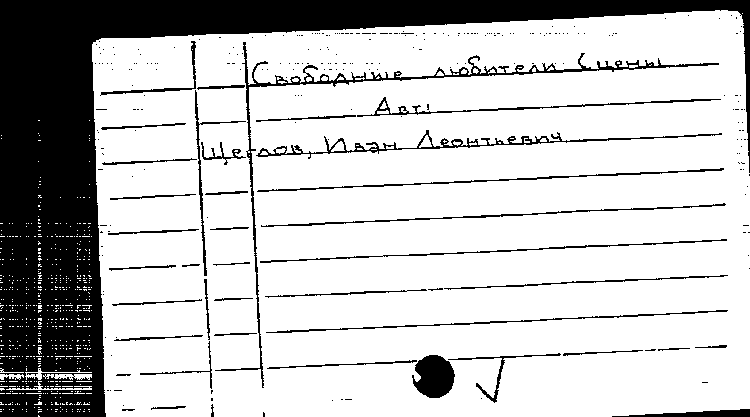 Свободные любители Сцены
Авт:
Щеглов, Иван Леонтьевич